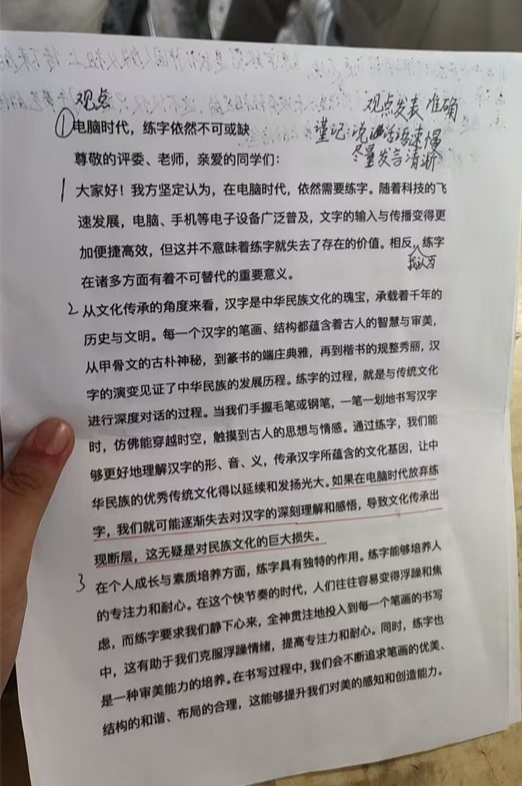 观点
观点发表 准确
谨记:说话语速慢
尽量发言清淅
①电脑时代，练字依然不可或缺
尊敬的评委、老师，亲爱的同学们：
1 大家好！我方坚定认为，在电脑时代，依然需要练字。随着科技的飞
速发展，电脑、手机等电子设备广泛普及，文字的输入与传播变得更
加便捷高效，但这并不意味着练字就失去了存在的价值。相反，练字
我认为
在诸多方面有着不可替代的重要意义。
2 从文化传承的角度来看，汉字是中华民族文化的瑰宝，承载着千年的
历史与文明。每一个汉字的笔画、结构都蕴含着古人的智慧与审美，
从甲骨文的古朴神秘，到篆书的端庄典雅，再到楷书的规整秀丽，汉
字的演变见证了中华民族的发展历程。练字的过程，就是与传统文化
进行深度对话的过程。当我们手握毛笔或钢笔，一笔一划地书写汉字
时，仿佛能穿越时空，触摸到古人的思想与情感。通过练字，我们能
够更好地理解汉字的形、音、义，传承汉字所蕴含的文化基因，让中
华民族的优秀传统文化得以延续和发扬光大。如果在电脑时代放弃练
字，我们就可能逐渐失去对汉字的深刻理解和感悟，导致文化传承出
现断层，这无疑是对民族文化的巨大损失。
3 在个人成长与素质培养方面，练字具有独特的作用。练字能够培养人
的专注力和耐心。在这个快节奏的时代，人们往往容易变得浮躁和焦
虑，而练字要求我们静下心来，全神贯注地投入到每一个笔画的书写
中，这有助于我们克服浮躁情绪，提高专注力和耐心。同时，练字也
是一种审美能力的培养。在书写过程中，我们会不断追求笔画的优美、
结构的和谐、布局的合理，这能够提升我们对美的感知和创造能力。